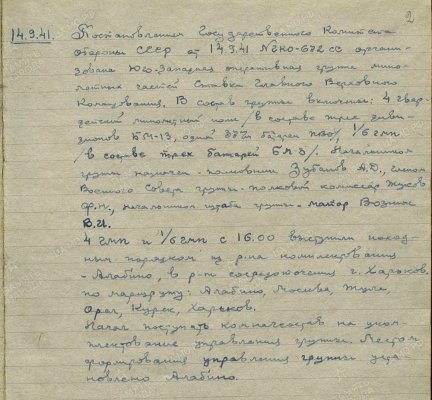 2
14.9.41. Постановлением Государственного Комитета
обороны СССР от 14.9.41 №ГКО-682сс органи-
зована Юго-Западная оперативная группа мино-
метных частей Ставки Главного Верховного
Командования. В состав группы включены: 4 гвар-
дейский минометный полк /в составе трех диви-
зионов БМ-13, одной 37мм батареи ПВО/, 1/6 гмп
/в составе трех батарей БМ 8/. Начальником
группы назначен - полковник Зубанов А.Д., членом
Военного Совета группы - полковой комиссар Жуков
Ф.Н., начальником штаба группы - майор
В.И.
4 гмп и 1/6 гмп с 16.00 выступили поход-
ным порядком из р-на комплектования
- Алабино, в р-н сосредоточения г. Харьков.
по маршруту: Алабино, Москва, Тула,
Орел, Курск, Харьков.
Начал поступать комначсостав на уком-
плектование управления группы. Местом
формирования управления группы уста-
новлено Алабино.